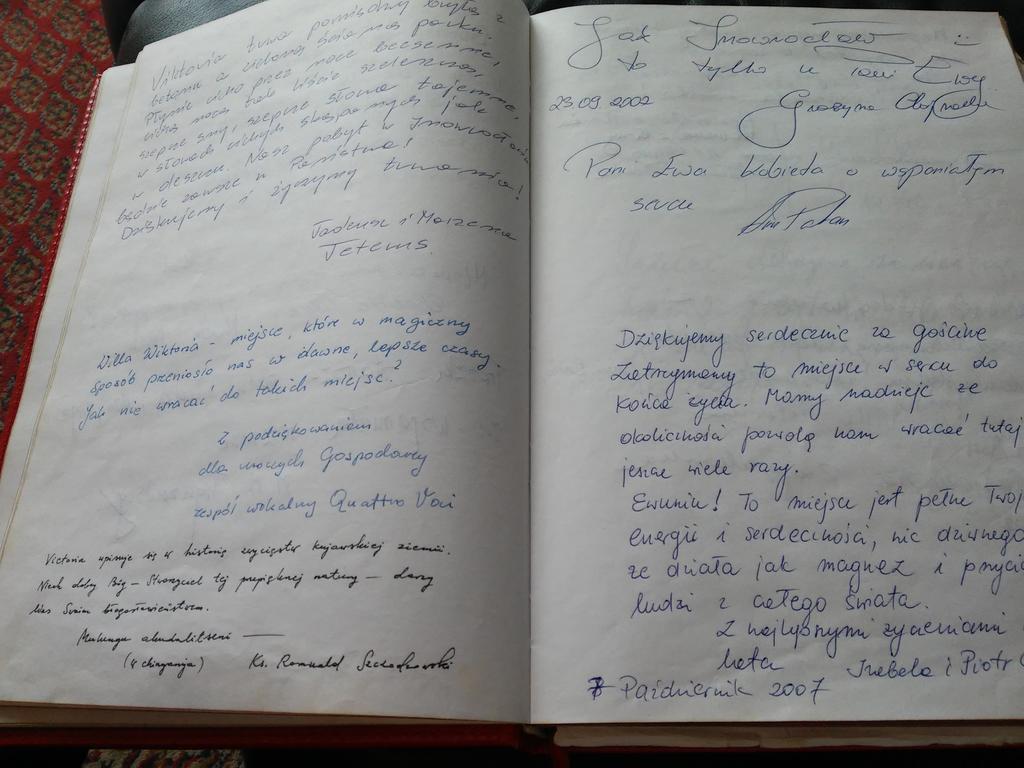 Wiktoria trwa pomiędzy bryłą z
betonu a zieloną ścianą parku.
Płynie cicho przez noce bezsenne,
ciszą nocną tak liście szeleszczą,
szepcze sny, szepcze słowa tajemne,
w słowach cichych skąpanych jak
w deszczu. Nasz pobyt w Inowrocławiu
będzie zawsze u Państwa!
Dziękujemy i życzymy trwania!
Tadeusz i Marzena
Tetems.
Willa Wiktoria - miejsce, które w magiczny
sposób przeniosło nas w dawne, lepsze czasy.
Jak nie wracać do takich miejsc?
Z podziękowaniem
dla uroczych Gospodarzy
zespół wokalny Quattro Voci
Victoria wpisuje się w historię zwycięstw kujawskiej ziemi.
Niech dobry Bóg - Stworzyciel tej przepięknej natury - darzy
Was Swoim błogosławieństwem.
(4 chinganja) Ks. Romuald
Jak Inowrocław :)
to tylko u Pani Ewy
23.09.2002 Grażyna
Pani Ewa Kobieta o wspaniałym
sercu
Dziękujemy serdecznie za gościnę
Zatrzymamy to miejsce w sercu do
końca życia. Mamy nadzieję że
okoliczności pozwolą nam wracać tutaj
jeszcze wiele razy.
Ewuniu! To miejsce jest pełne Twoj
energii i serdeczności, nic dziwnego
że działa jak magnez i przycią
ludzi z całego świata.
Z najlepszymi życzeniami
Beata Izabela i Piotr
7 Październik 2007